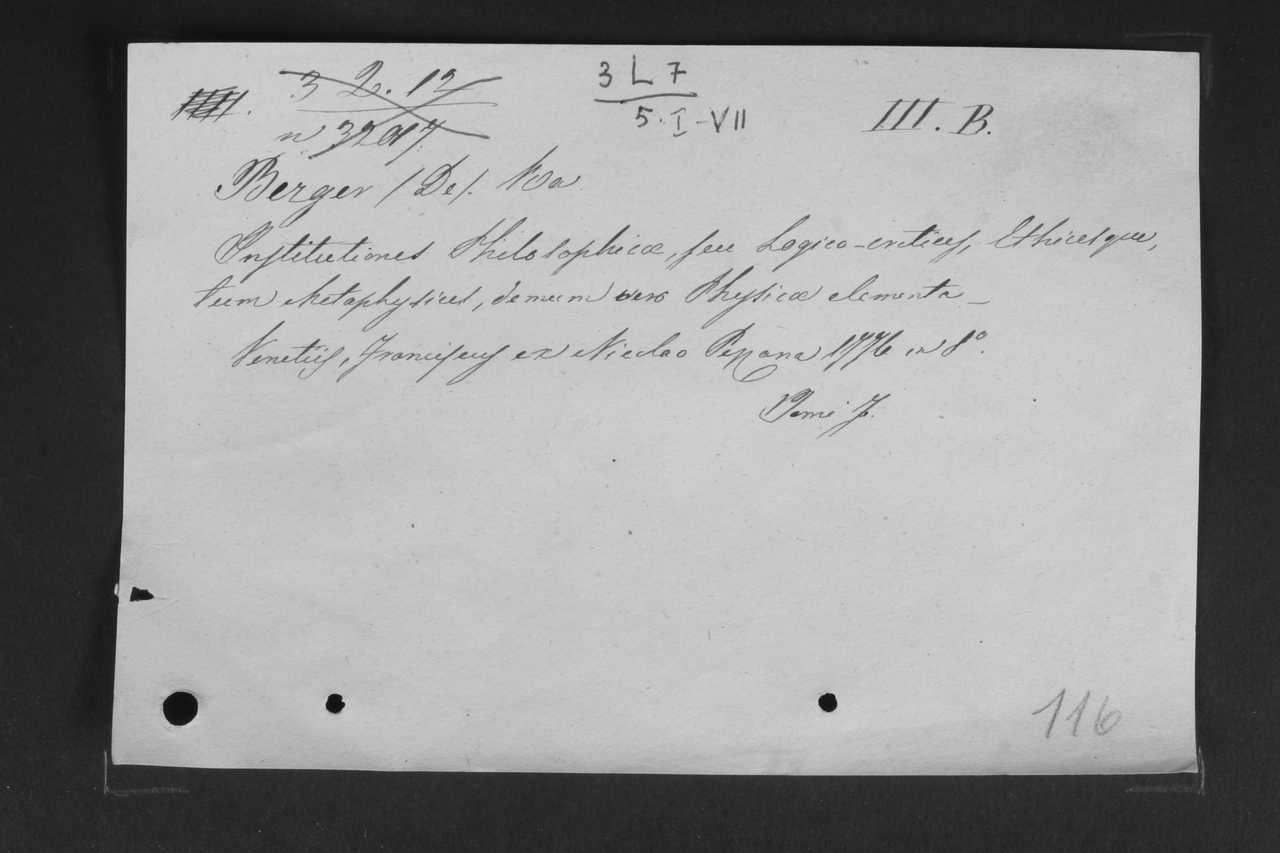 3 L. 12
n 32017.
3 L 7
5. I-VII
III. B.
Berger /De/.
Institutiones Philosophicæ, seu Logico-critices, Ethicesque,
tum Metaphysices, demum vero Physicæ elementa_
Venetiis, Franciscus ex Nicolao Pezzana 1776 in 8º.
Tomi 7.
116